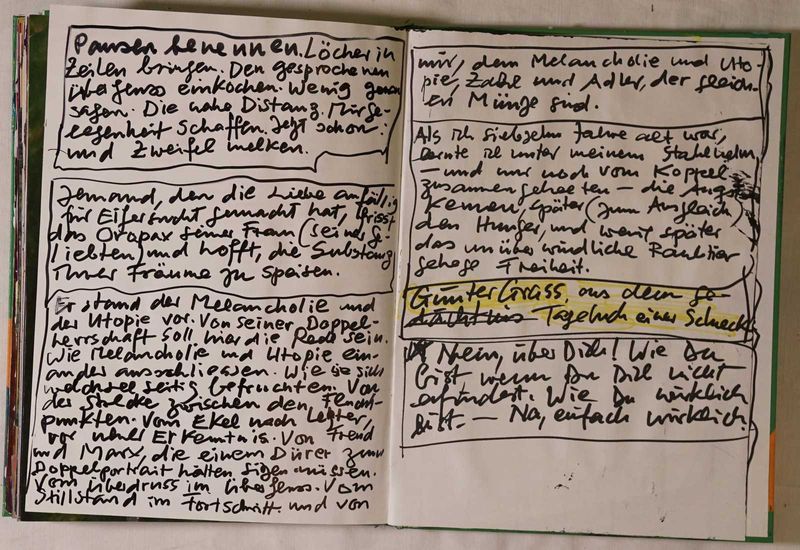 Pausen benennen. Löcher in
Zeilen bringen. Den gesprochenen
Überfluss einkochen. Wenig genau
sagen. Die nahe Distanz. Für Ge-
legenheit schaffen. Jetzt schon:
und Zweifel melken.
Jemand, den die Liebe anfällig
für Eifersucht gemacht hat, frisst
das Oropax seiner Frau (seiner Ge-
liebten) und hofft, die Substanz
Ihrer Träume zu speisen.
Er stand der Melancholie und
der Utopie vor. Von seiner Doppel-
herrschaft soll hier die Rede sein.
Wie Melancholie und Utopie ein-
ander ausschliessen. Wie sie sich
wechselseitig befruchten. Von
der Strecke zwischen den Flucht-
punkten. Vom Ekel nach letzter,
vor neuer Erkenntnis. Von Freud
und Marx, die einem Dürer zum
Doppelportrait hätten sitzen müssen.
Vom Überdruss im Überfluss. Vom
Stillstand im Fortschritt. und von
mir, dem Melancholie und Uto-
pie, Zahl und Adler, der gleich-
en Münze sind.
Als ich siebzehn Jahre alt war,
lernte ich unter meinem Stahlhelm
– und nur noch vom Koppel
zusammengehalten – die Angst
kennen, später (zum Ausgleich
den Hunger, und wenig später
das unüberwindliche Raubtier
gehege Freiheit.
Günter Grass, aus dem Ge-
dächtnis Tagebuch einer Schnecke
Nein, über Dich! Wie Du
bist, wenn Du Dich nicht
erfindest. Wie Du wirklich
bist. – Na, einfach wirklich.